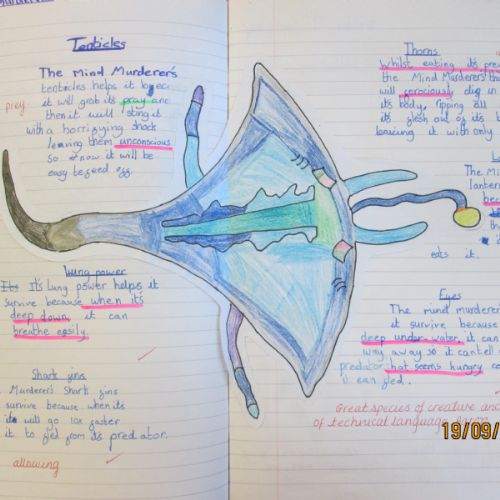 Tenticles
The Mind Murderer's
tenticles helps it
it will grab its pray and
then it will sting it
with a horrifying shock
leaving them unconscious
so now it will be
easy to feed off.
pray
Lung power
Its It's lung power helps it
survive because when it's
deep down, it can
breathe easily.
Shark fins
Murderer's Shark fins
survive because when its
it will go 10x faster
it to fled from its predator.
allowing
Thorns
Whilst eating its
the Mind Murderer's
will ferociously dig in
its body, ripping all
its flesh out of its
leaving it with only
The
lantern
eats it.
Eyes
The mind murderer
it survive because
deep under-water, it can
way away so it can tell
predator that seems hungry
can fled.
Great species of creature
of technical language
19/09